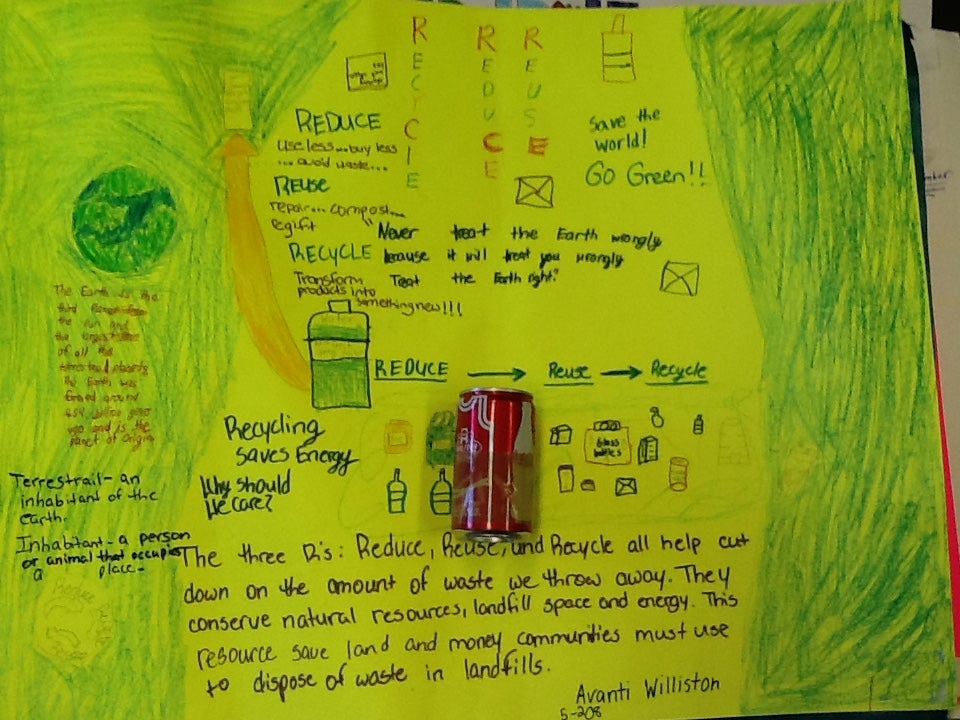 RECYCLE
REDUCE
REUSE
REDUCE
use less... buy less
... avoid waste...
REUSE
repair... compost...
Regift
RECYCLE
Transform
products into
something new!!!
Save the
world!
Go Green!!
"Never treat the Earth wrongly
because it will treat you wrongly
Treat the Earth right"
REDUCE → Reuse → Recycle
Recycling
saves Energy
Why should
We care?
Glass
bottles
The Earth is the
third
the sun and
the
of all the
planets
The Earth was
formed around
4.54 billion years
ago and is the
planet of origin
Terrestrail- an
inhabitant of the
earth.
Inhabitant- a person
or animal that occupies
a place-
The three R's: Reduce, Reuse, and Recycle all help cut
down on the amount of waste we throw away. They
conserve natural resources, landfill space and energy. This
resource save land and money communities must use
to dispose of waste in landfills.
Avanti Williston
5-208